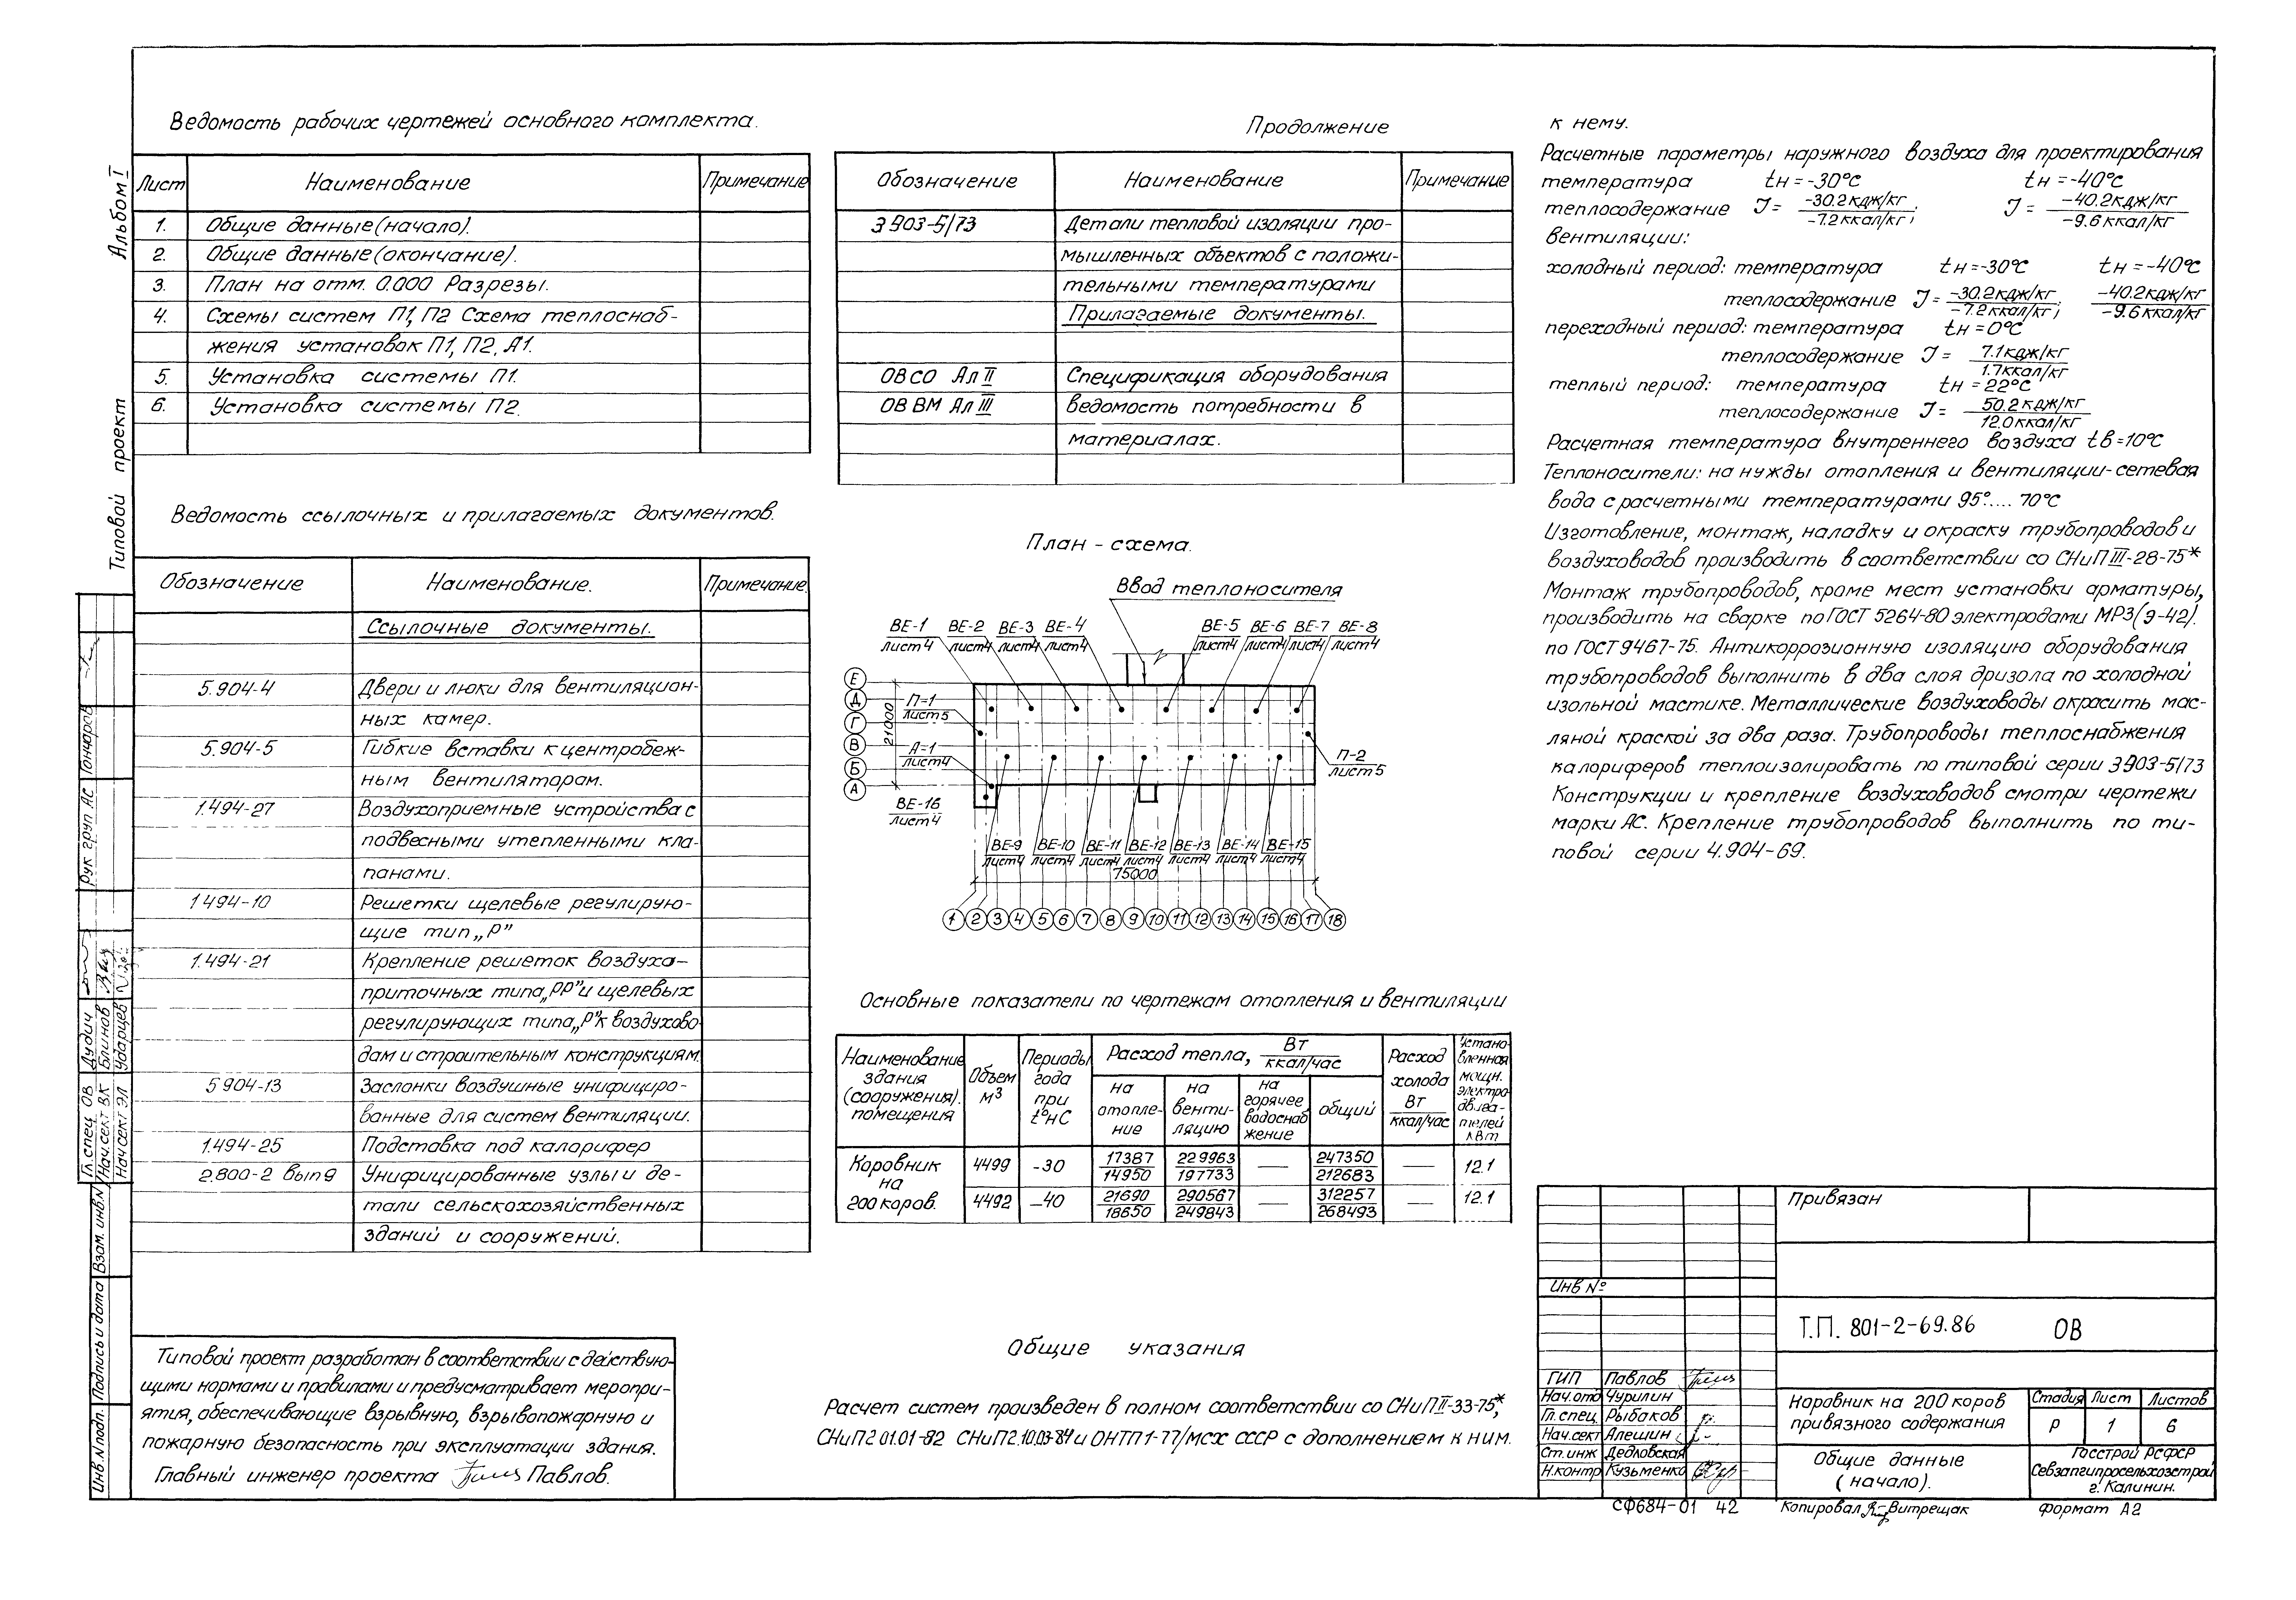 Альбом I
Типовой проект
Ведомость рабочих чертежей основного комплекта.
Лист Наименование Примечание
1. Общие данные (начало).
2. Общие данные (окончание).
3. План на отм. 0.000 Разрезы.
4. Схемы систем П1, П2 Схема теплоснаб-
жения установок П1, П2, А1.
5. Установка системы П1.
6. Установка системы П2.
Ведомость ссылочных и прилагаемых документов.
Обозначение Наименование. Примечание.
Ссылочные документы.
5.904-4 Двери и люки для вентиляцион-
ных камер.
5.904-5 Гибкие вставки к центробеж-
ным вентиляторам.
1.494-27 Воздухоприемные устройства с
подвесными утепленными кла-
панами.
1494-10 Решетки щелевые регулирую-
щие тип „Р”
1.494-21 Крепление решеток воздуха-
приточных типа „РР” и щелевых
регулирующих типа „Р” к воздухово-
дам и строительным конструкциям.
5904-13 Заслонки воздушные унифициро-
ванные для систем вентиляции.
1.494-25 Подставка под калорифер
2.800-2 вып 9 Унифицированные узлы и де-
тали сельскохозяйственных
зданий и сооружений.
Типовой проект разработан в соответствии с действую-
щими нормами и правилами и предусматривает меропри-
ятия, обеспечивающие взрывную, взрывопожарную и
пожарную безопасность при эксплуатации здания.
Главный инженер проекта Павлов.
Продолжение
Обозначение Наименование Примечание
3 903-5/73 Детали тепловой изоляции про-
мышленных объектов с положи-
тельными температурами
Прилагаемые документы.
ОВ СО Ал II Спецификация оборудования
ОВ ВМ Ал III ведомость потребности в
материалах.
План - схема.
Ввод теплоносителя
ВЕ-1 ВЕ-2 ВЕ-3 ВЕ-4 ВЕ-5 ВЕ-6 ВЕ-7 ВЕ-8
лист 4 лист4 лист4 лист4 лист4 лист4 лист4 лист4
Е
Д
Г
В
Б
А
21000
П=1
лист 5
А=1
лист4
П-2
лист 5
ВЕ-16
лист 4
ВЕ-9 ВЕ-10 ВЕ-11 ВЕ-12 ВЕ-13 ВЕ-14 ВЕ-15
лист4 лист4 лист4 лист4 лист4 лист4 лист4
75000
1 2 3 4 5 6 7 8 9 10 11 12 13 14 15 16 17 18
Основные показатели по чертежам отопления и вентиляции
Наименование здания (сооружения). помещения
Объем м³
Периоды года при t°нС
Расход тепла, Вт/ккал/час
на отопле-ние
на венти-ляцию
на горячее водоснаб жение
общий
Расход холода Вт/ккал/час
Устано-вленная мощн. электро-двига-телей кВт
Коровник на 200 коров.
4499 -30 17387/14950 229963/197733 — 247350/212683 — 12.1
4492 -40 21690/18650 290567/249843 — 312257/268493 — 12.1
Общие указания
Расчет систем произведен в полном соответствии со СНиП II-33-75*,
СНиП 2 01.01-82 СНиП 2.10.03-84 и ОНТП 1-77/мсх СССР с дополнением к ним.
к нему.
Расчетные параметры наружного воздуха для проектирования
температура tн=-30°С tн=-40°С
теплосодержание J= -30.2кдж/кг/-7.2ккал/кг; J= -40.2кдж/кг/-9.6ккал/кг
вентиляции:
холодный период: температура tн=-30°С tн=-40°С
теплосодержание J= -30.2кдж/кг/-7.2ккал/кг; -40.2кдж/кг/-9.6ккал/кг
переходный период: температура tн=0°С
теплосодержание J= 7.1кдж/кг/1.7ккал/кг
теплый период: температура tн=22°С
теплосодержание J= 50.2кдж/кг/12.0ккал/кг
Расчетная температура внутреннего воздуха tв=10°С
Теплоносители: на нужды отопления и вентиляции-сетевая
вода с расчетными температурами 95°.... 70°С
Изготовление, монтаж, наладку и окраску трубопроводов и
воздуховодов производить в соответствии со СНиП III-28-75*
Монтаж трубопроводов, кроме мест установки арматуры,
производить на сварке по ГОСТ 5264-80 электродами МР3(э-42).
по ГОСТ 9467-75. Антикоррозионную изоляцию оборудования
трубопроводов выполнить в два слоя дризола по холодной
изольной мастике. Металлические воздуховоды окрасить мас-
ляной краской за два раза. Трубопроводы теплоснабжения
калориферов теплоизолировать по типовой серии 3903-5/73
Конструкции и крепление воздуховодов смотри чертежи
марки АС. Крепление трубопроводов выполнить по ти-
повой серии 4.904-69.
Привязан
Инв №
Т.П. 801-2-69.86 ОВ
ГИП Павлов
Нач.отд Чурилин
Гл.спец. Рыбаков
Нач.сект Алешин
Ст.инж Дедловская
Н.контр Кузьменко
Коровник на 200 коров
привязного содержания
Стадия Лист Листов
Р 1 6
Общие данные
(начало).
Госстрой РСФСР
Севзапгипросельхозстрой
г. Калинин.
СФ684-01 42 Копировал Витрещак Формат А2
Рук груп АС Гончаров
Гл.спец ОВ Дудич
Нач.сект ВК Блинов
Нач сект ЭЛ Ударцев
Взам. инв.N
Подпись и дата
Инв.N подл.